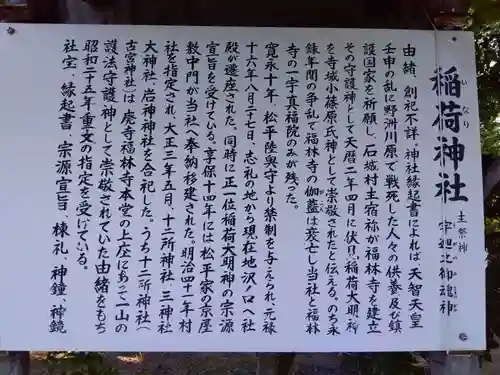 稲荷神社
いなり
主祭神
宇迦之御魂神
由緒、創祀不詳。神社縁起書によれば、天智天皇
壬申の乱に野洲川原で戦死した人々の供養及び鎮
護国家を祈願し、石城村主宿祢が福林寺を建立
その守護神として天暦二年四月に伏見稲荷大明神
を寺域小篠原氏神として崇敬されたと伝える。のち永
録年間の争乱で福林寺の伽藍は衰亡し当社と福林
寺の一宇真福院のみが残った。
寛永十年、松平陸奥守より禁制を与えられ、元禄
十六年八月二十七日、志礼の地から現在地沢ノ口へ社
殿が遷座された。同時に正一位稲荷大明神の宗源
宣旨を受けている。享保十四年には松平家の京屋
敷中門が当社へ奉納移建された。明治四十一年村
社を指定され、大正三年五月、十二所神社、三神社
大神社、岩神神社を合祀した。うち十二所神社(
古宮神社)は、廃寺福林寺本堂の上座にあって山の
護法守護神として崇敬されていた由緒をもち
昭和二十五年重文の指定を受けている。
社宝、縁起書、宗源宣旨、棟礼、神鐘、神鏡